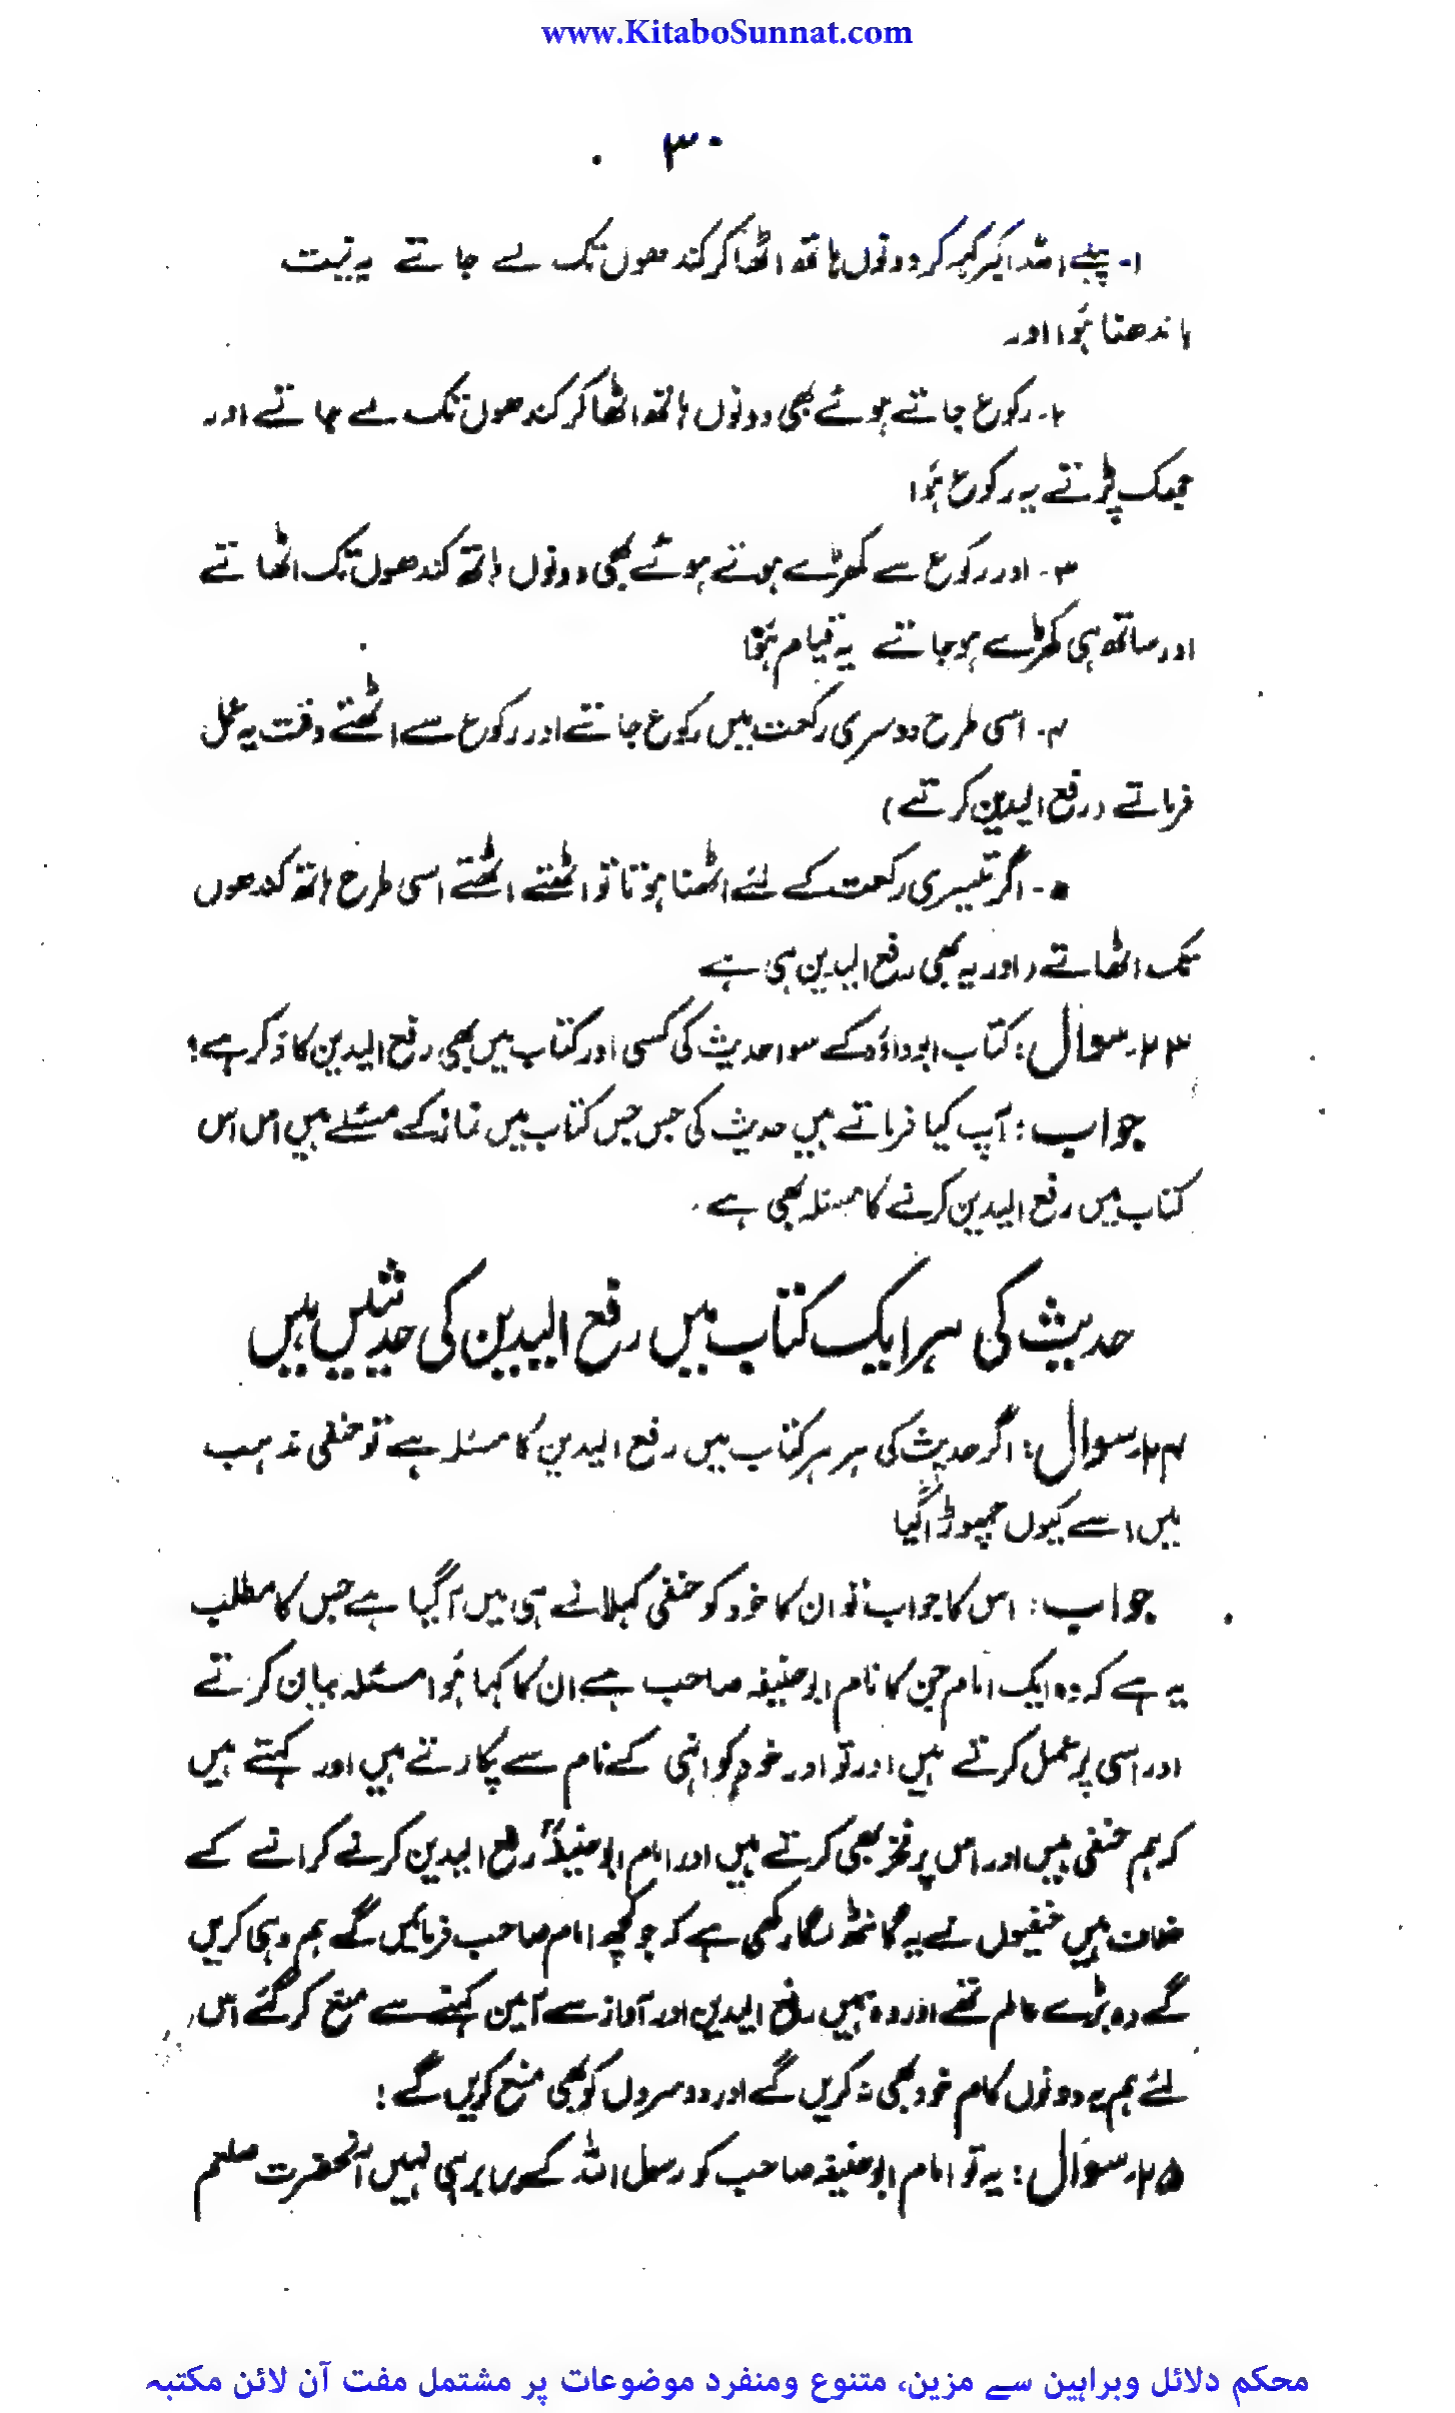 www.KitaboSunnat.com
۳۰
۱- پہلے اللہ اکبر کہہ کر دونوں ہاتھ اٹھا کر کندھوں تک لے جاتے یہ نیت
باندھنا ہُوا اور
۲- رکوع جاتے ہوئے بھی دونوں ہاتھ اٹھا کر کندھوں تک لے جاتے اور
جھک پڑتے یہ رکوع ہُوا
۳- اور رکوع سے کھڑے ہوتے ہوئے بھی دونوں ہاتھ کندھوں تک اٹھاتے
اور ساتھ ہی کھڑے ہو جاتے یہ قیام ہُوا
۴- اسی طرح دوسری رکعت میں رکوع جاتے اور رکوع سے اٹھتے وقت یہ عمل
فرماتے (رفع الیدین کرتے)
۵- اگر تیسری رکعت کے لئے اٹھنا ہوتا تو اٹھتے اٹھتے اسی طرح ہاتھ کندھوں
تک اٹھاتے (اور یہ بھی رفع الیدین ہی ہے
۲۳-سوال: کتاب ابوداؤد کے سوا حدیث کی کسی اور کتاب میں بھی رفع الیدین کا ذکر ہے؟
جواب: آپ کیا فرماتے ہیں حدیث کی جس جس کتاب میں نماز کے مسئلے ہیں اس اس
کتاب میں رفع الیدین کرنے کا مسئلہ بھی ہے۔
حدیث کی ہر ایک کتاب میں رفع الیدین کی حدیثیں ہیں
۲۴-سوال: اگر حدیث کی ہر ہر کتاب میں رفع الیدین کا مسئلہ ہے تو حنفی مذہب
میں اسے کیوں چھوڑا گیا
جواب: اس کا جواب تو ان کا خود کو حنفی کہلانے ہی میں آ گیا ہے جس کا مطلب
یہ ہے کہ وہ ایک امام جن کا نام ابوحنیفہ صاحب ہے ان کا کہا ہُوا مسئلہ بیان کرتے
اور اسی پر عمل کرتے ہیں اور تو اور خود کو انہی کے نام سے پکارتے ہیں اور کہتے ہیں
کہ ہم حنفی ہیں اور اس پر فخر بھی کرتے ہیں اور امام ابوحنیفہؒ رفع الیدین کرنے کرانے کے
خلاف ہیں حنفیوں نے یہ گانٹھ لگا رکھی ہے کہ جو کچھ امام صاحب فرمائیں گے ہم وہی کریں
گے وہ بڑے عالم تھے اور وہ ہمیں رفع الیدین اور آواز سے آمین کہنے سے منع کر گئے اس
لئے ہم یہ دونوں کام خود بھی نہ کریں گے اور دوسروں کو بھی منع کریں گے!
۲۵-سوال: یہ تو امام ابوحنیفہ صاحب کو رسول اللہ کے برابر ہی نہیں آنحضرت صلعم
محکم دلائل وبراہین سے مزین، متنوع ومنفرد موضوعات پر مشتمل مفت آن لائن مکتبہ